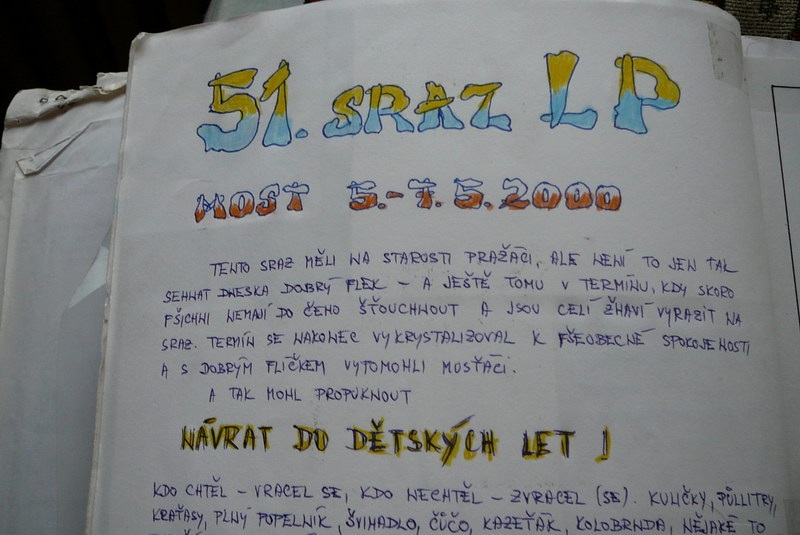 51. SRAZ LP
MOST 5.-7.5.2000
TENTO SRAZ MĚLI NA STAROSTI PRAŽÁCI, ALE NENÍ TO JEN TAK
SEHNAT DNESKA DOBRÝ FLEK - A JEŠTĚ TOMU V TERMÍNU, KDY SKORO
FŠICHNI NEMAJÍ DO ČEHO ŠŤOUCHNOUT A JSOU CELÍ ŽHAVÍ VYRAZIT NA
SRAZ. TERMÍN SE NAKONEC VYKRYSTALIZOVAL K FŠEOBECNÉ SPOKOJENOSTI
A S DOBRÝM FLÍČKEM VYTOMOHLI MOSŤÁCI.
A TAK MOHL PROPUKNOUT
NÁVRAT DO DĚTSKÝCH LET!
KDO CHTĚL - VRACEL SE, KDO NECHTĚL - ZVRACEL (SE). KULIČKY, PŮLLITRY,
KRAŤASY, PLNÝ POPELNÍK, ŠVIHADLO, ČŮČO, KAZEŤÁK, KOLOBRNDA, NĚJAKÉ TO